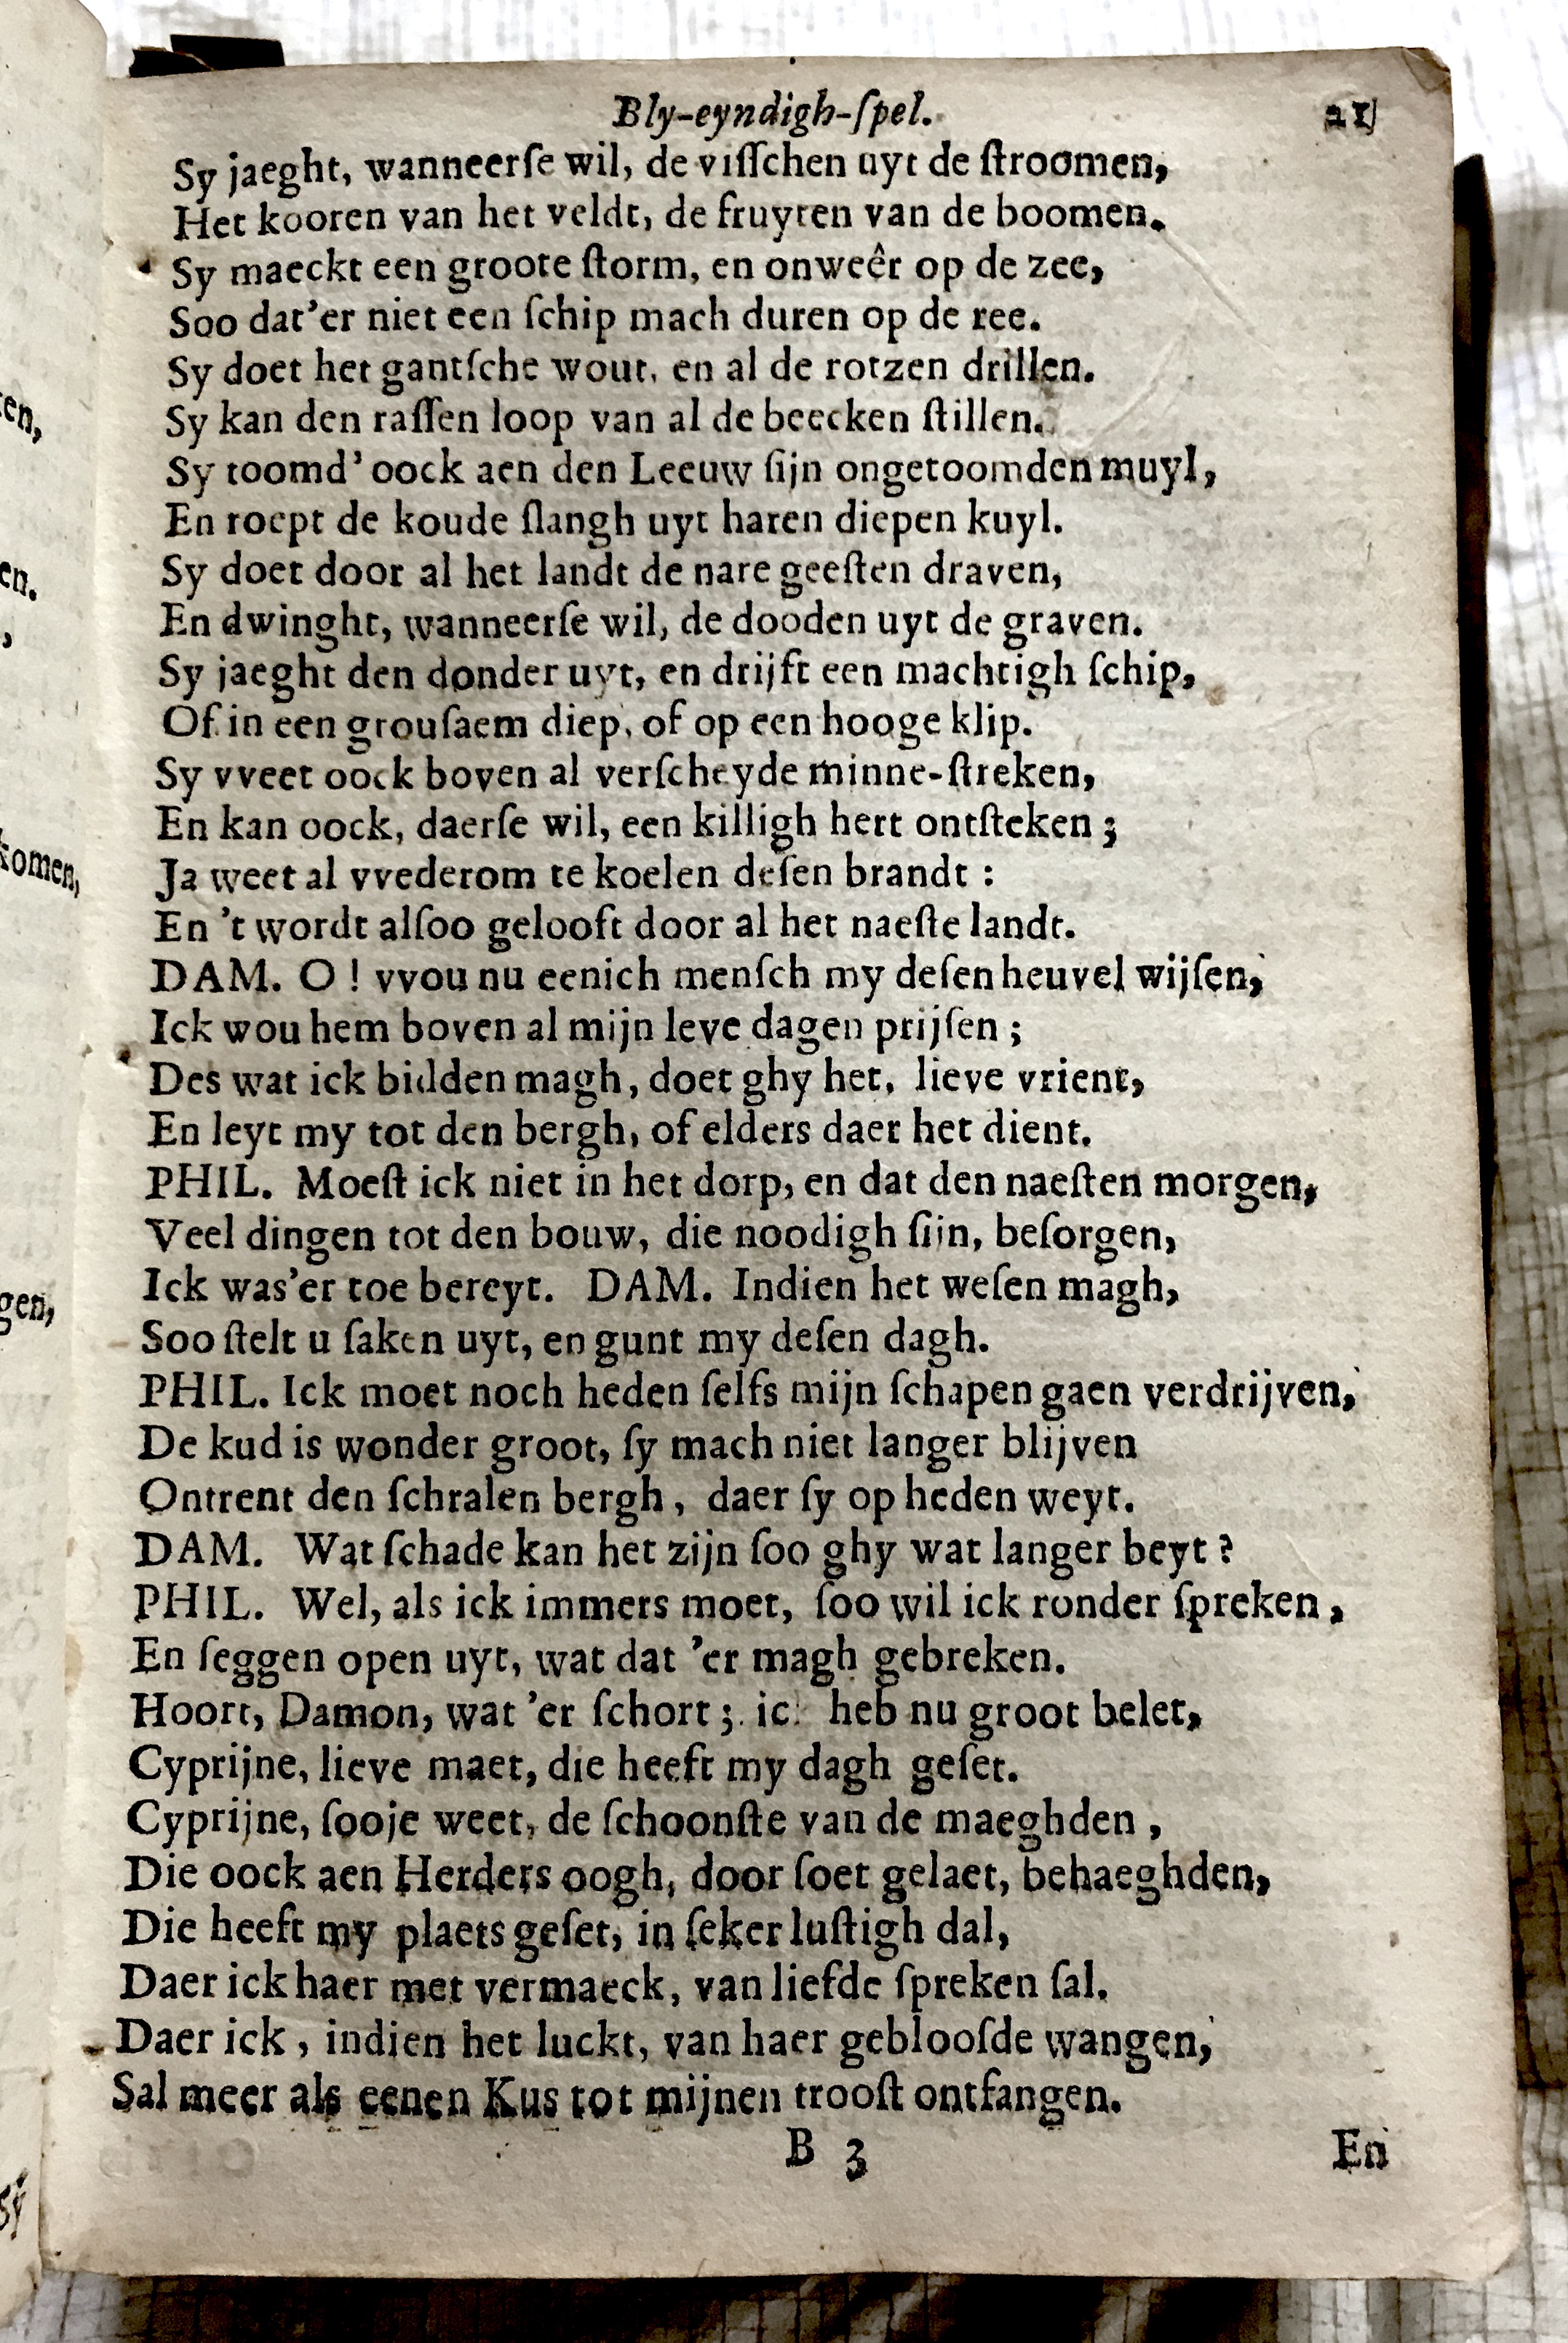 Bly-eyndigh-ſpel. 21
Sy jaeght, wanneerſe wil, de viſſchen uyt de ſtroomen,
Het kooren van het veldt, de fruyten van de boomen.
Sy maeckt een groote ſtorm, en onweêr op de zee,
Soo dat'er niet een ſchip mach duren op de ree.
Sy doet het gantſche wout, en al de rotzen drillen.
Sy kan den raſſen loop van al de beecken ſtillen.
Sy toomd' oock aen den Leeuw ſijn ongetoomden muyl,
En roept de koude ſlangh uyt haren diepen kuyl.
Sy doet door al het landt de nare geeſten draven,
En dwinght, wanneerſe wil, de dooden uyt de graven.
Sy jaeght den donder uyt, en drijft een machtigh ſchip,
Of in een grouſaem diep, of op een hooge klip.
Sy vveet oock boven al verſcheyde minne-ſtreken,
En kan oock, daerſe wil, een killigh hert ontſteken;
Ja weet al vvederom te koelen deſen brandt:
En 't wordt alſoo gelooft door al het naeſte landt.
DAM. O! vvou nu eenich menſch my deſen heuvel wijſen,
Ick wou hem boven al mijn leve dagen prijſen;
Des wat ick bidden magh, doet ghy het, lieve vrient,
En leyt my tot den bergh, of elders daer het dient.
PHIL. Moeſt ick niet in het dorp, en dat den naeſten morgen,
Veel dingen tot den bouw, die noodigh ſijn, beſorgen,
Ick was'er toe bereyt. DAM. Indien het weſen magh,
Soo ſtelt u ſaken uyt, en gunt my deſen dagh.
PHIL. Ick moet noch heden ſelfs mijn ſchapen gaen verdrijven,
De kud is wonder groot, ſy mach niet langer blijven
Ontrent den ſchralen bergh, daer ſy op heden weyt.
DAM. Wat ſchade kan het zijn ſoo ghy wat langer beyt?
PHIL. Wel, als ick immers moet, ſoo wil ick ronder ſpreken,
En ſeggen open uyt, wat dat 'er magh gebreken.
Hoort, Damon, wat 'er ſchort; ic heb nu groot belet,
Cyprijne, lieve maet, die heeft my dagh geſet.
Cyprijne, ſooje weet, de ſchoonſte van de maeghden,
Die oock aen Herders oogh, door ſoet gelaet, behaeghden,
Die heeft my plaets geſet, in ſeker luſtigh dal,
Daer ick haer met vermaeck, van liefde ſpreken ſal.
Daer ick, indien het luckt, van haer geblooſde wangen,
Sal meer als eenen Kus tot mijnen trooſt ontfangen.
B 3 En